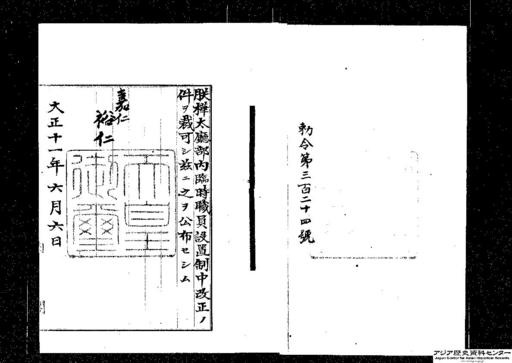 勅令第三百二十四號
朕樺太廳部内臨時職員設置制中改正ノ
件ヲ裁可シ茲ニ之ヲ公布セシム
嘉仁
裕仁
天皇
御璽
大正十一年六月六日
アジア歴史資料センター
Japan Center for Asian Historical Records